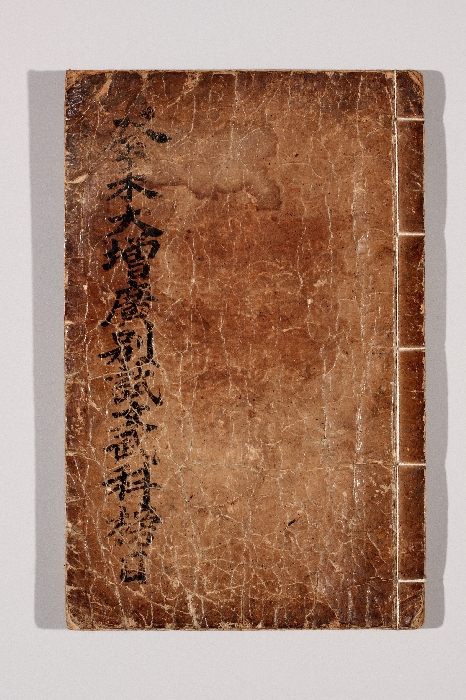 癸未大增廣別試文武科榜目